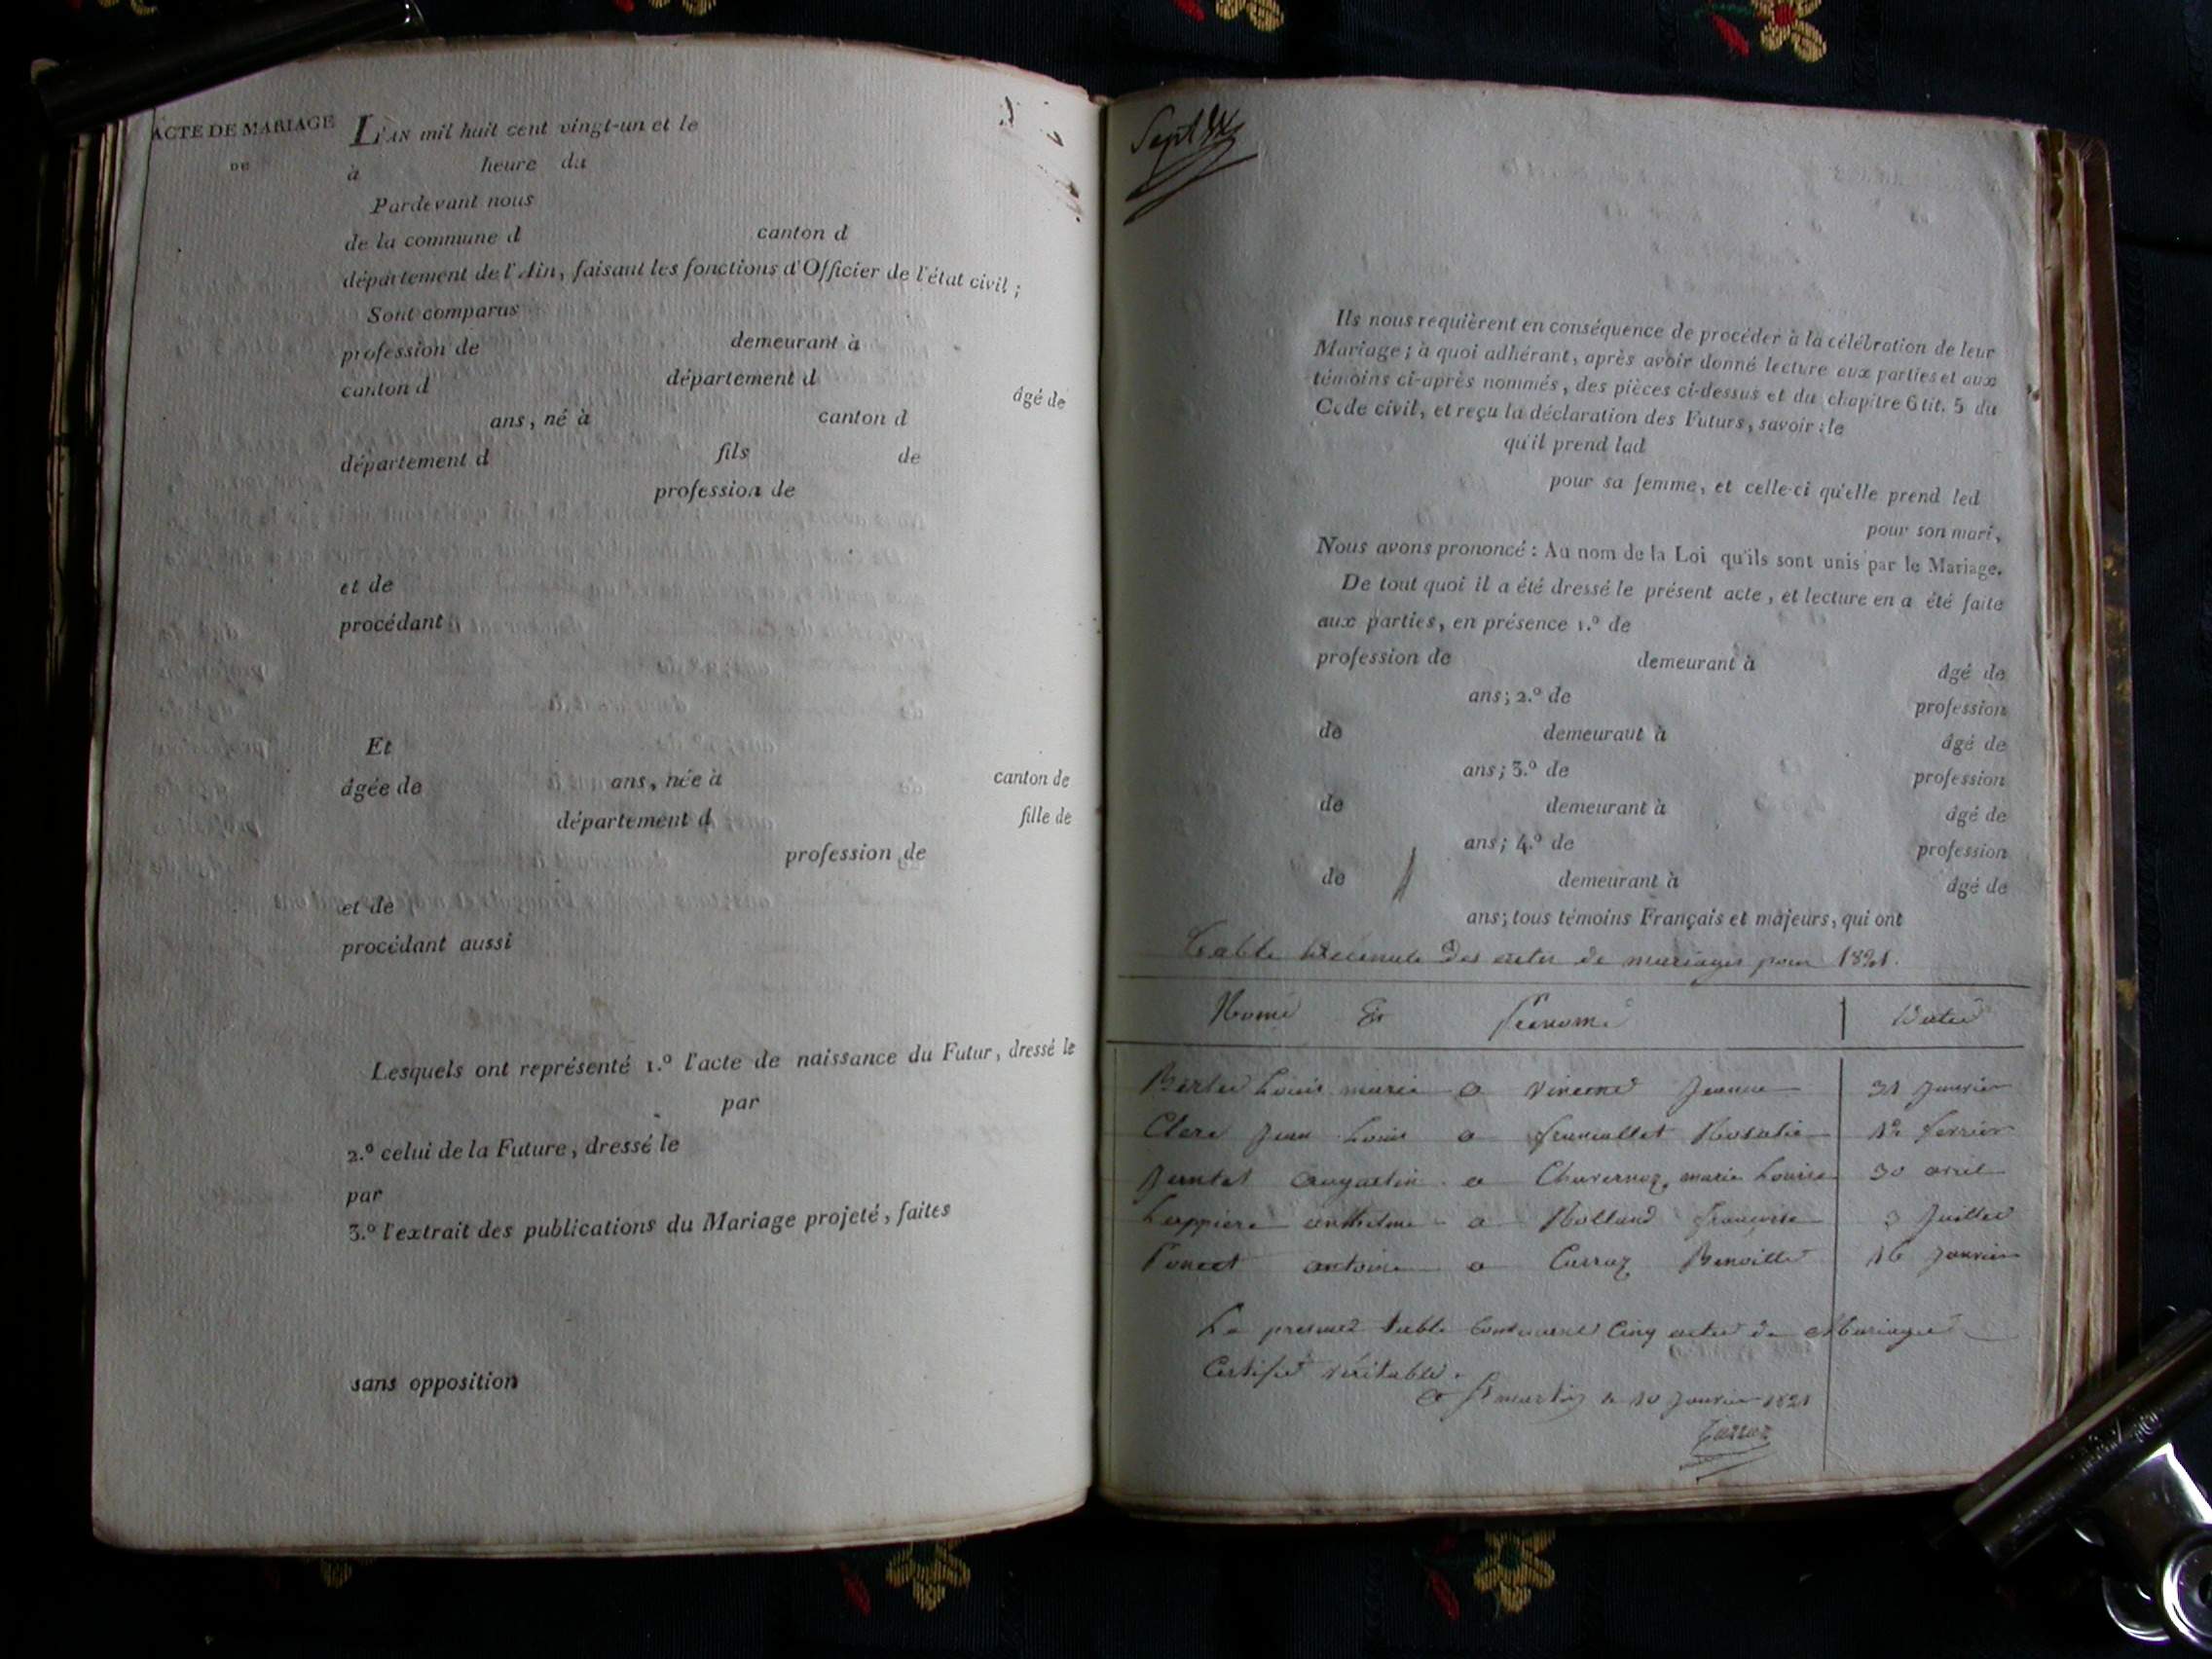 ACTE DE MARIAGE
DE
L'AN mil huit cent vingt-un et le
à heure du
Pardevant nous
de la commune d canton d
département de l'Ain, faisant les fonctions d'Officier de l'état civil ;
Sont comparus
profession de demeurant à
canton d département d âgé de
ans, né à canton d
département d fils de
profession de
et de
procédant
Et
âgée de ans, née à canton de
département d fille de
profession de
et de
procédant aussi
Lesquels ont représenté 1.º l'acte de naissance du Futur, dressé le
par
2.º celui de la Future, dressé le
par
3.º l'extrait des publications du Mariage projeté, faites
sans opposition
Sept
Ils nous requièrent en conséquence de procéder à la célébration de leur
Mariage ; à quoi adhérant, après avoir donné lecture aux parties et aux
témoins ci-après nommés, des pièces ci-dessus et du chapitre 6 tit. 5 du
Code civil, et reçu la déclaration des Futurs, savoir : le
qu'il prend lad
pour sa femme, et celle-ci qu'elle prend led
pour son mari,
Nous avons prononcé : Au nom de la Loi qu'ils sont unis par le Mariage.
De tout quoi il a été dressé le présent acte, et lecture en a été faite
aux parties, en présence 1.º de
profession de demeurant à âgé de
ans ; 2.º de profession
de demeurant à âgé de
ans ; 3.º de profession
de demeurant à âgé de
ans ; 4.º de profession
de demeurant à âgé de
ans ; tous témoins Français et majeurs, qui ont
Table des actes de mariages pour 1821.
Noms Et Prenoms Dates
Louis marie a Vincent Jeanne 31 Janvier
Clerc Jean Louis a Rosalie 12 fevrier
Juntet Augustin a Chavernoz marie Louise 30 avril
Lappiere anthelme a Rolland francoise 3 Juillet
Poncet antoine a Carraz Benoitte 16 Janvier
La presente table contenant Cinq actes de Mariages
Certifié véritable.
a St martin le 10 Janvier 1821